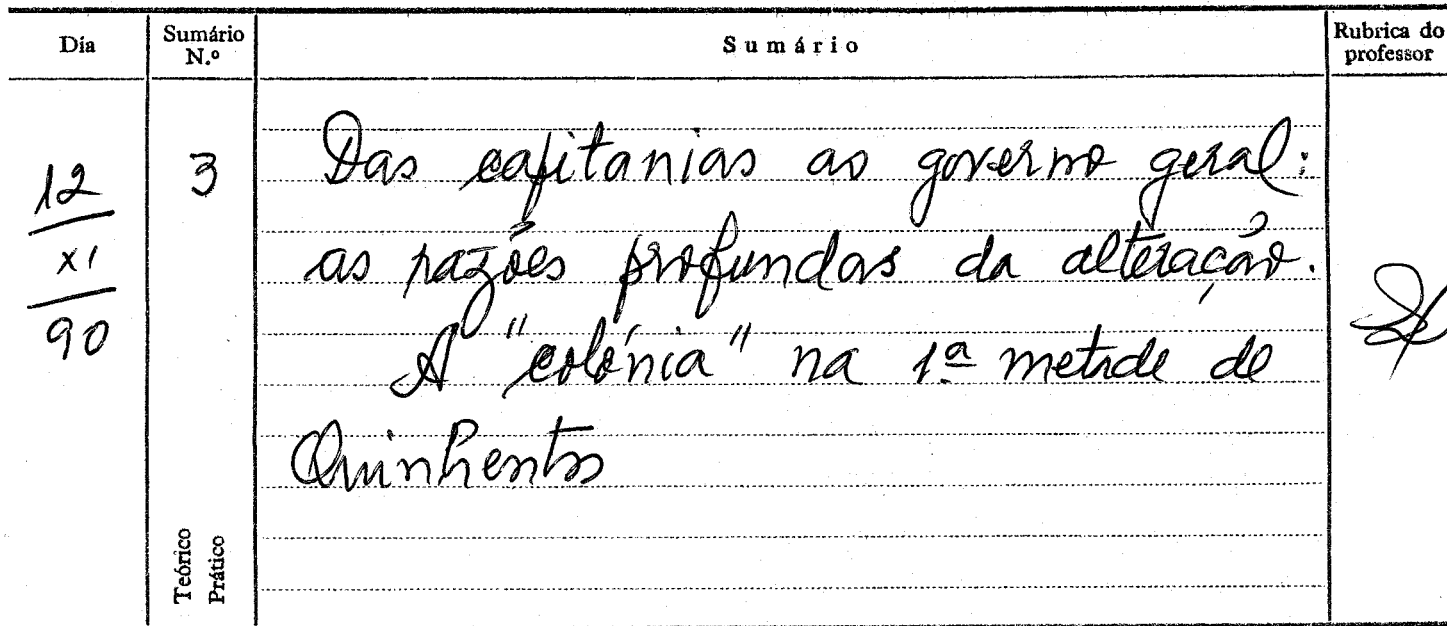 Dia
Sumário N.º
Sumário
Rubrica do professor
12
XI
90
3
Das capitanias ao governo geral:
as razões profundas da alteração.
A "colónia" na 1ª metade de
Quinhentos
Teórico
Prático